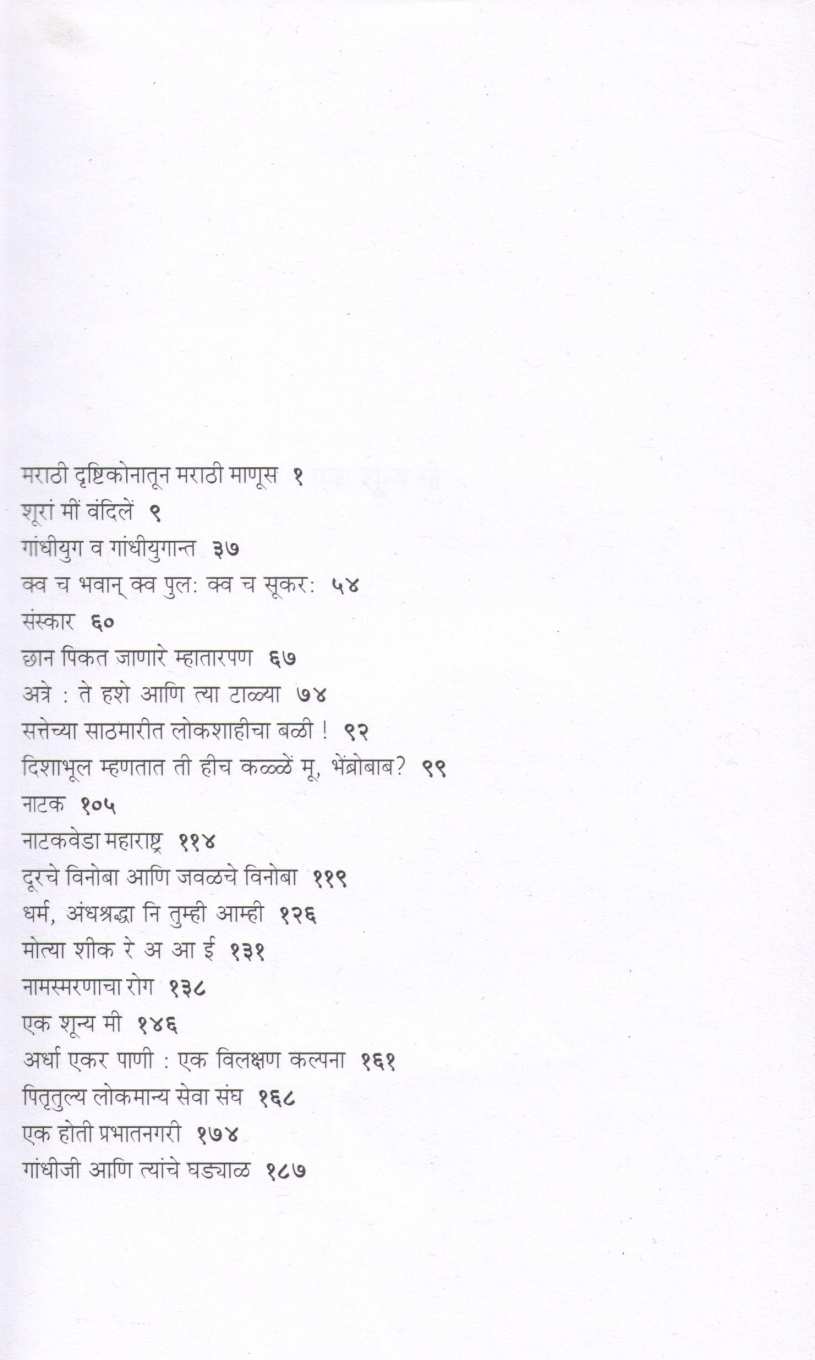 मराठी दृष्टिकोनातून मराठी माणूस १
शूरां मीं वंदिलें ९
गांधीयुग व गांधीयुगान्त ३७
क्व च भवान् क्व पुलः क्व च सूकरः ५४
संस्कार ६०
छान पिकत जाणारे म्हातारपण ६७
अत्रे : ते हशे आणि त्या टाळ्या ७४
सत्तेच्या साठमारीत लोकशाहीचा बळी ! ९२
दिशाभूल म्हणतात ती हीच कळ्ळें मू, भेंब्रोबाब? ९९
नाटक १०५
नाटकवेडा महाराष्ट्र ११४
दूरचे विनोबा आणि जवळचे विनोबा ११९
धर्म, अंधश्रद्धा नि तुम्ही आम्ही १२६
मोत्या शीक रे अ आ ई १३१
नामस्मरणाचा रोग १३८
एक शून्य मी १४६
अर्धा एकर पाणी : एक विलक्षण कल्पना १६१
पितृतुल्य लोकमान्य सेवा संघ १६८
एक होती प्रभातनगरी १७४
गांधीजी आणि त्यांचे घड्याळ १८७